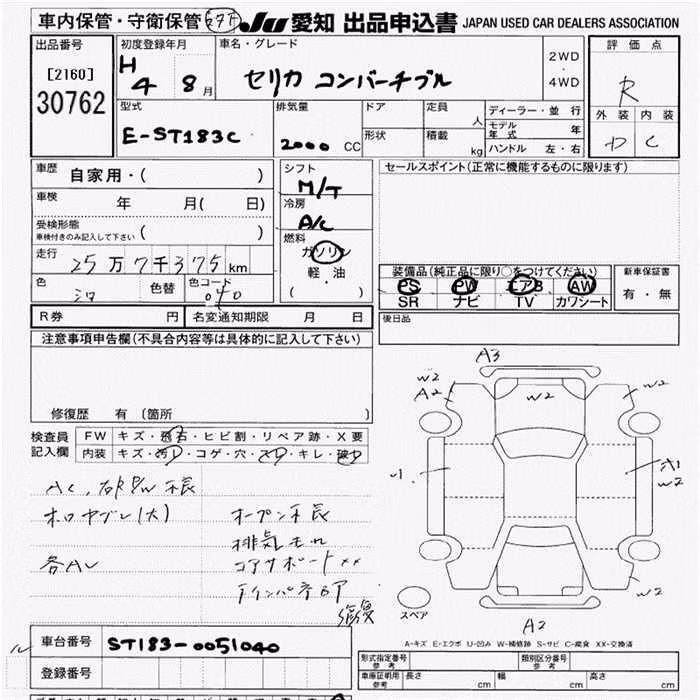 車内保管・守衛保管 JU 愛知 出品申込書 JAPAN USED CAR DEALERS ASSOCIATION
出品番号
[2160]
30762
初度登録年月
H 4 8 月
車名・グレード
セリカ コンバーチブル
2WD
・
4WD
評価点
R
外装 内装
D C
型式
E-ST183C
排気量
2000 CC
ドア
形状
定員
人
積載
kg
ディーラー・並行
モデル年式 年
ハンドル 左・右
車歴
自家用・( )
車検
年 月( 日)
受検形態
車検付きのみ記入して下さい ( )
走行
25万7千375km
色
シロ
色替
色コード
040
シフト
M/T
冷房
A/C
燃料
ガソリン
・
軽油
( )
セールスポイント(正常に機能するものに限ります)
装備品(純正品に限り○をつけてください)
PS PW エアB AW
SR ナビ TV カワシート
新車保証書
有・無
後日品
R券 円 名変通知期限 月 日
注意事項申告欄(不具合内容等は具体的に記入して下さい)
修復歴 有(箇所 )
検査員
記入欄
FW キズ・飛石・ヒビ割・リペア跡・X要
内装 キズ・汚れ・コゲ・穴・スレ・キレ・破れ
AC、右P/W不良
ホロヤブレ(大) オープン不良
排気もれ
各AU コアサポートXX
A3
W2
A2
W2
W2
U1
A1
W2
W2
A2
スペア
A-キズ E-エクボ U-凹み W-補修跡 S-サビ C-腐食 XX-交換済
車台番号
ST183-0051040
登録番号
形式指定番号
参考
類別区分番号
参考
車庫証明用
参考
長さ cm 幅 cm 高さ cm